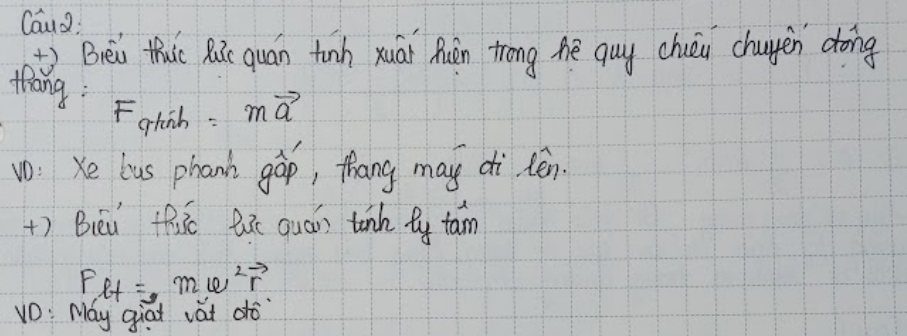 Câu 2:
+) Biểu thức lực quán tính xuất hiện trong hệ quy chiếu chuyển động
thẳng:
F qtính = m a⃗
VD: Xe bus phanh gấp, thang máy đi lên.
+) Biểu thức lực quán tính ly tâm
F lt = m ω² r⃗
VD: Máy giặt vắt đồ